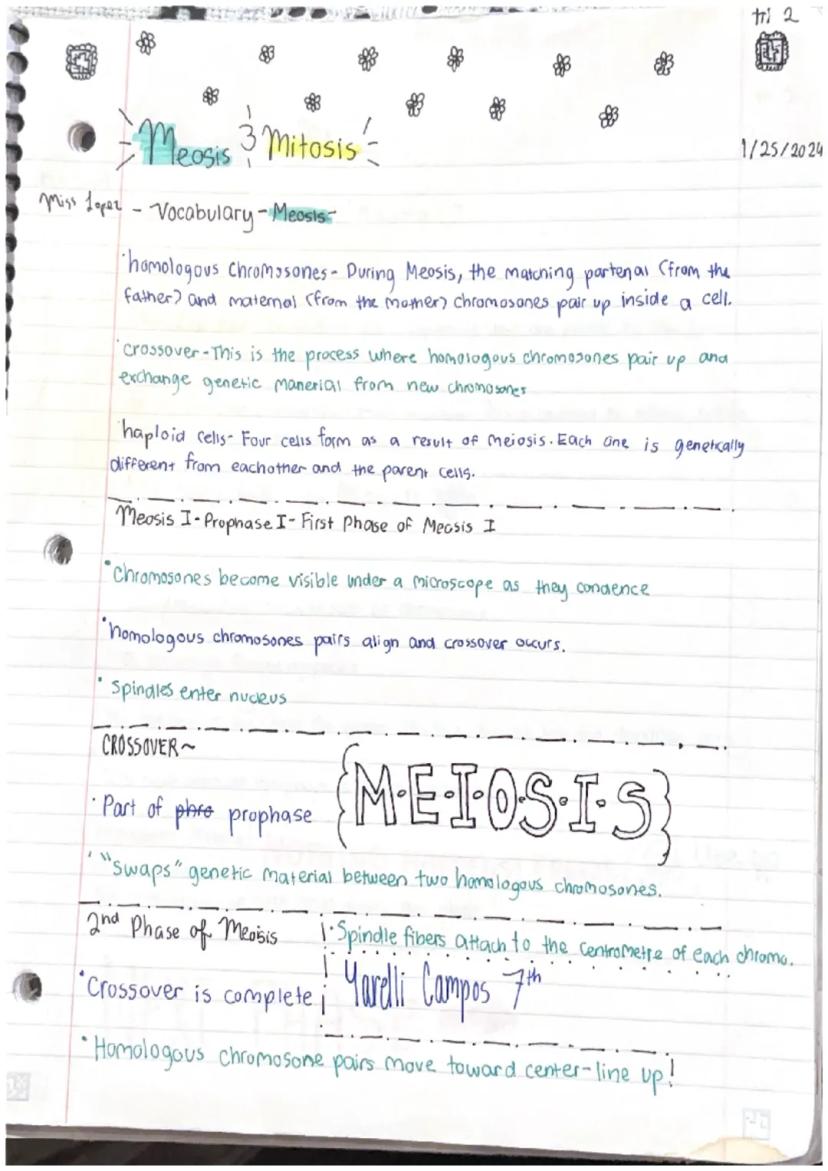 tri 2
Meosis & Mitosis
1/25/2024
Miss Lopez - Vocabulary - Meosis-
homologous Chromosones - During Meosis, the matching partenal (from the
father) and maternal (from the mother) chromosones pair up inside a cell.
crossover - This is the process where homologous chromosones pair up and
exchange genetic manerial from new chromosones
haploid cells - Four cells form as a result of meiosis. Each one is genetically
different from eachother and the parent cells.
Meosis I - Prophase I - First Phase of Meosis I
Chromosones become visible under a microscope as they condence
homologous chromosones pairs align and crossover occurs.
Spindles enter nucleus
CROSSOVER~
{M·E·I·O·S·I·S}
Part of phro prophase
"Swaps" genetic material between two homologous chromosones.
2nd Phase of Meosis
Spindle fibers attach to the centrometre of each chromo.
Crossover is complete
Yarelli Campos 7th
Homologous chromosone pairs move toward center-line up!